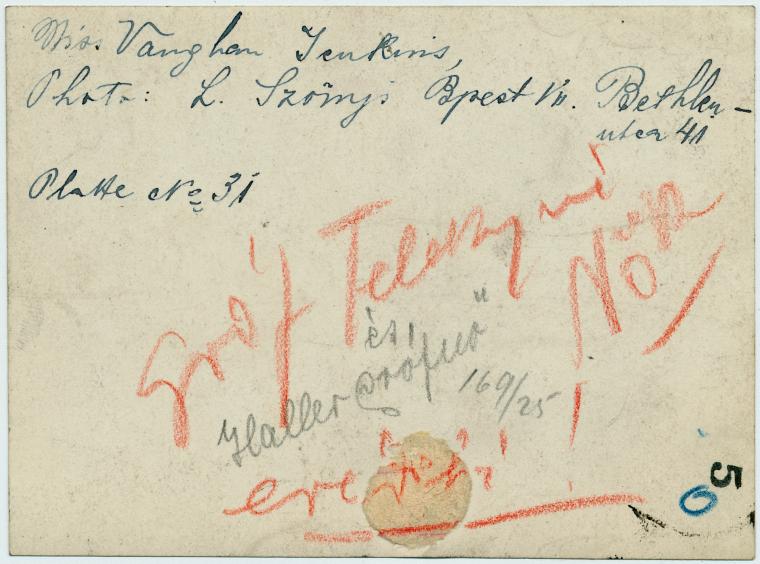 Miss Vaughan Jenkins,
Photo: L. Szőnyi Bpest VII. Bethlen-
utca 41
Platte No 31
Gróf Teleky né
és
Haller grófnő
169/25
50